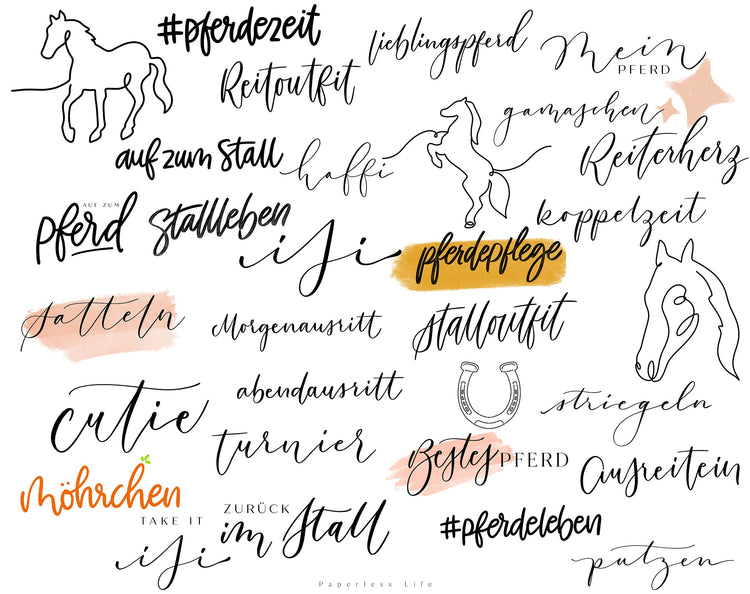 #pferdezeit
lieblingspferd
Mein
PFERD
Reitoutfit
gamaschen
auf zum Stall
haffi
Reiterherz
AUF ZUM
pferd
Stallleben
koppelzeit
isi
pferdepflege
satteln
Morgenausritt
stalloutfit
abendausritt
striegeln
cutie
turnier
Bestes PFERD
Ausreitein
möhrchen
TAKE IT
isi
ZURÜCK
im Stall
#pferdeleben
putzen
Paperless Life